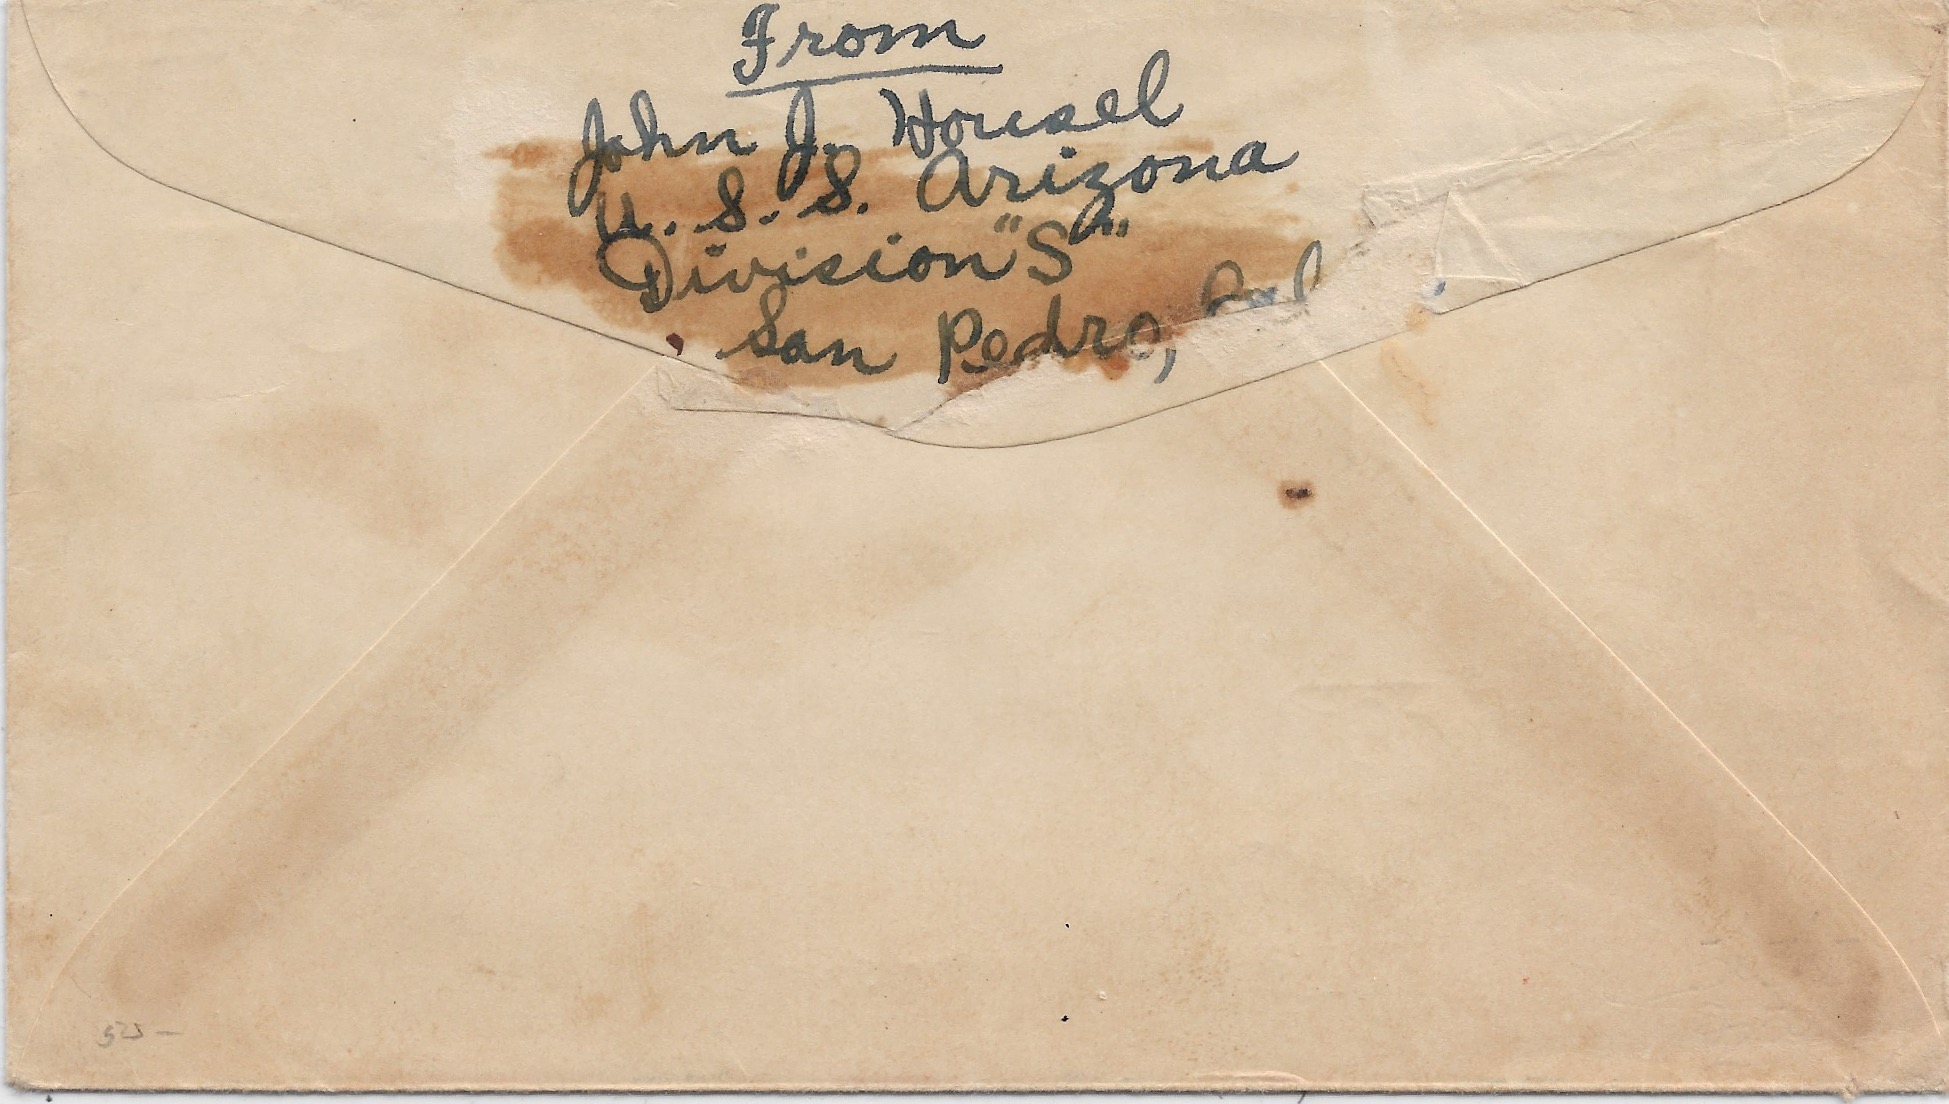 From
John J. Housel
U.S.S. Arizona
Division "S"
San Pedro, Cal